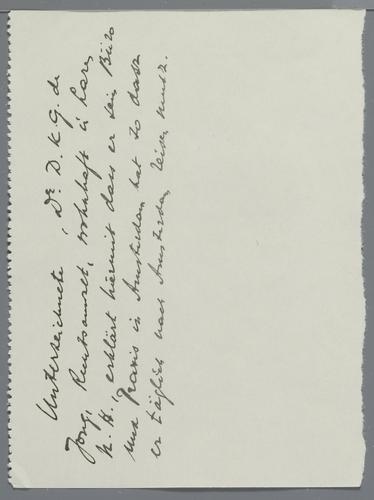 Unterzeichnete, Dr. D. K. G. de
Jong, Rechtsanwalt, wohnhaft in Laren
N. H., erklärt hiermit dass er sein Büro
und Praxis in Amsterdam hat so dass
er täglich nach Amsterdam reisen muss.